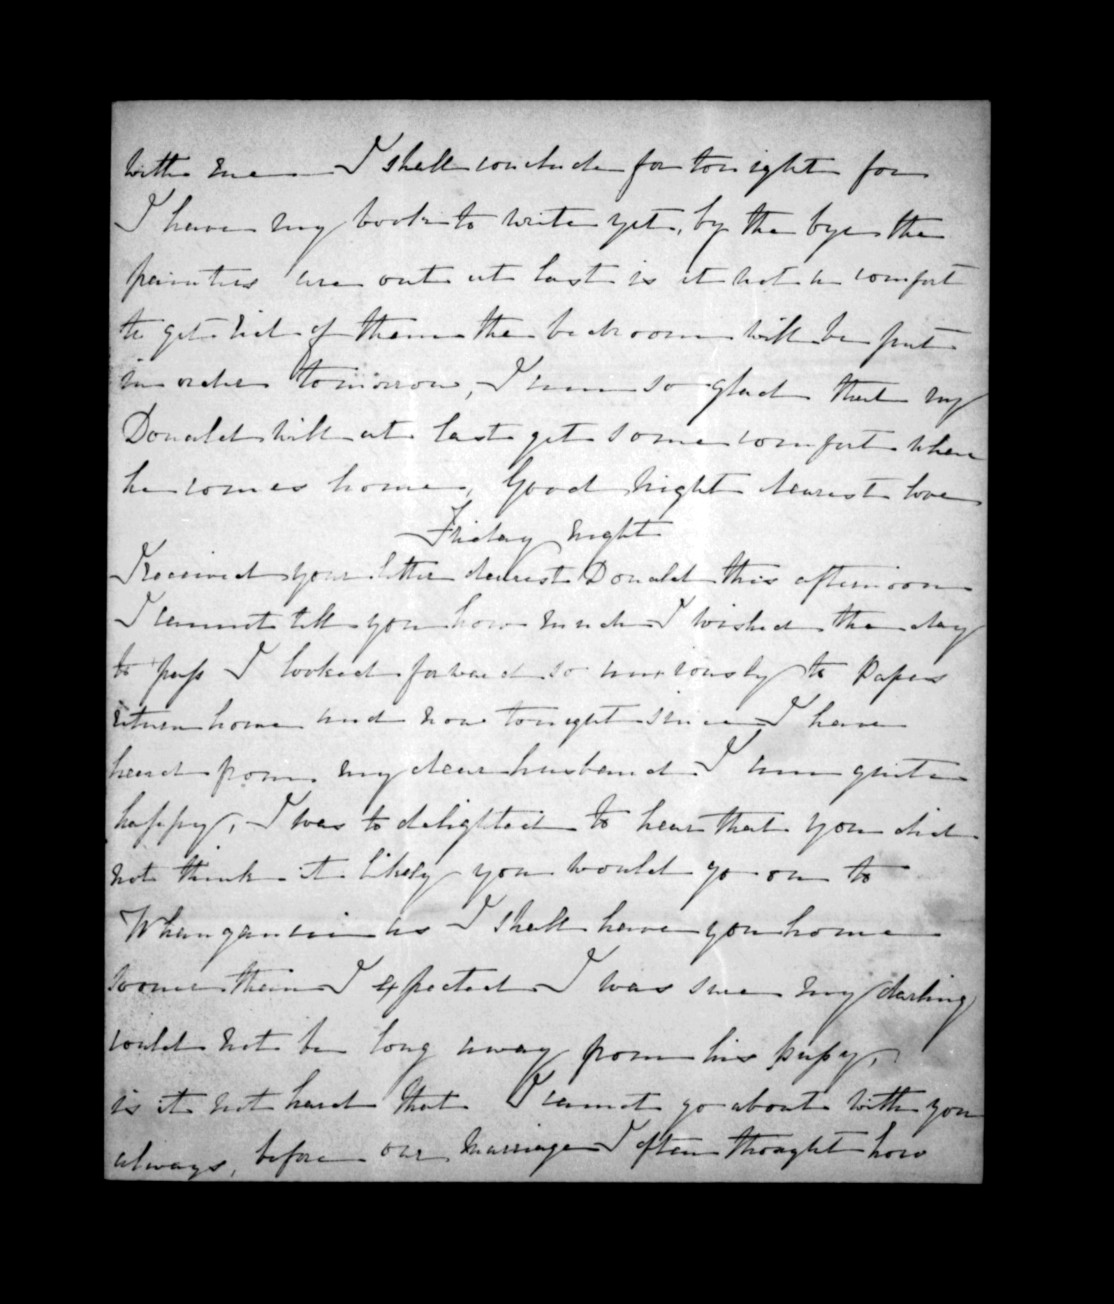 with me I shall conclude for tonight for
I have my book to write yet, by the bye the
painters are out at last is it not a comfort
to get rid of them the bedroom will be put
in order tomorrow, I am so glad that my
Donald will at last get some comfort when
he comes home, Good Night dearest love
Friday night
I received your letter dearest Donald this afternoon
I cannot tell you how much I wished the day
to pass I looked forward so anxiously to Papas
return home and now tonight since I have
heard from my dear husband I am quite
happy, I was so delighted to hear that you did
not think it likely you would go on to
Whanganui as I shall have you home
sooner than I expected I was sure my darling
could not be long away from his pussy,
is it not hard that I cannot go about with you
always, before our marriage I often thought how